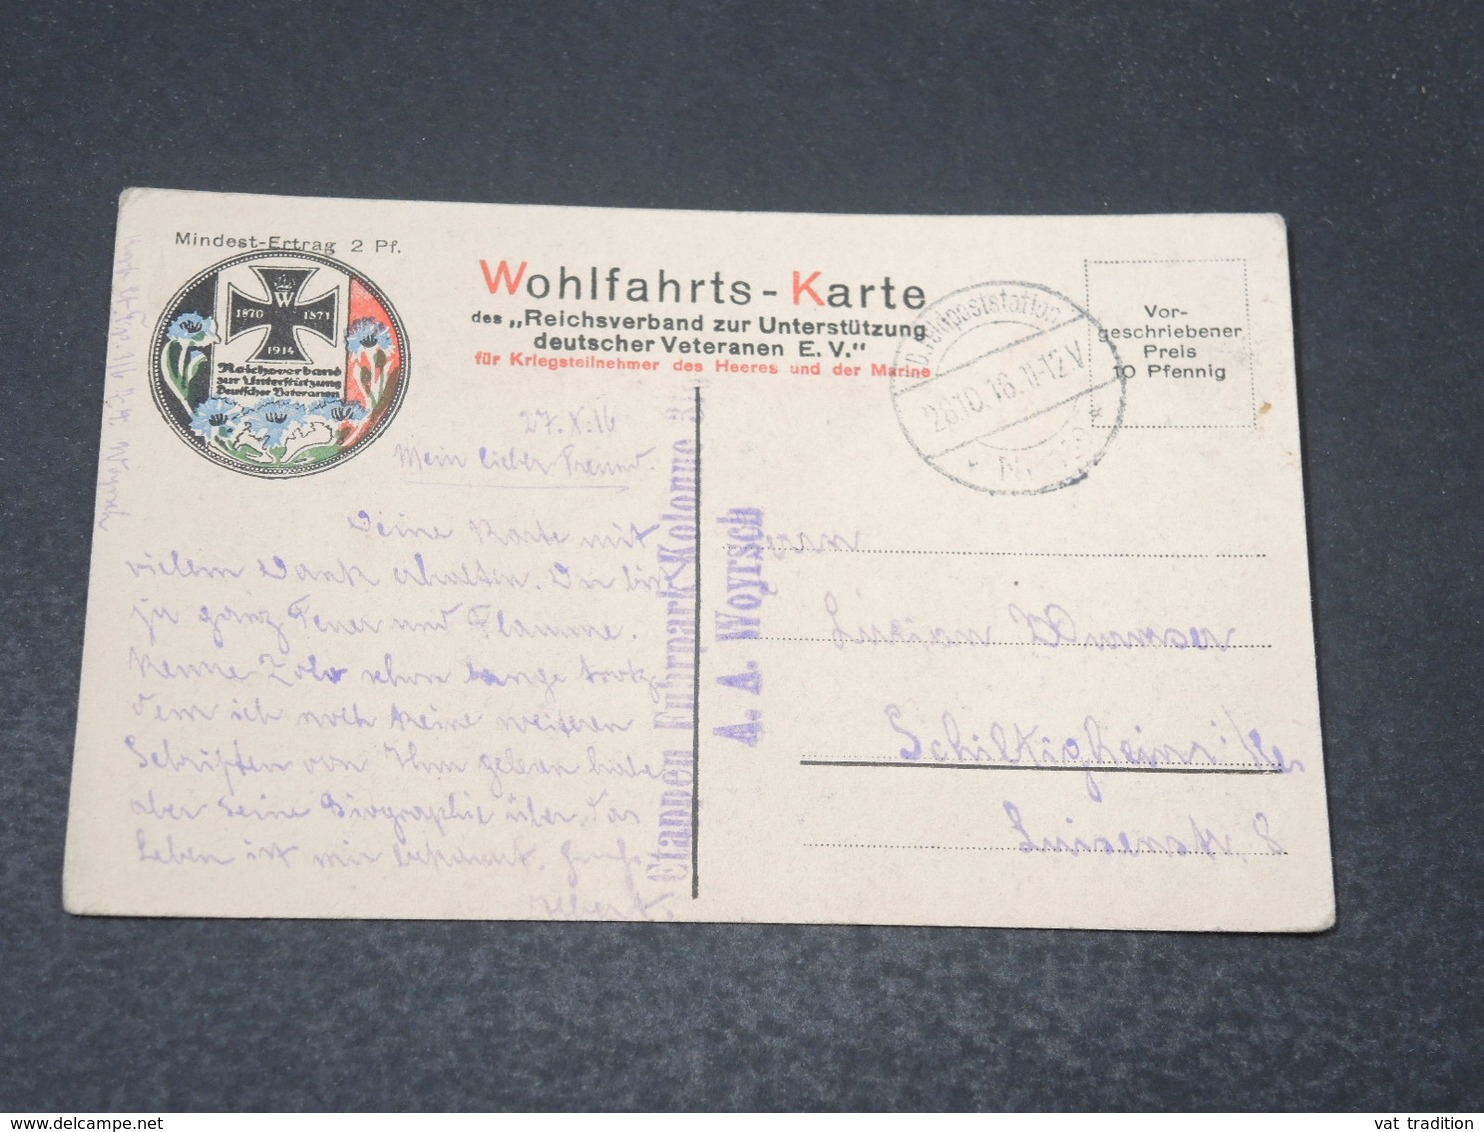 Mindest-Ertrag 2 Pf.
W
1870 1871
1914
Reichsverband
zur Unterstützung
Deutscher Veteranen
Wohlfahrts-Karte
des „Reichsverband zur Unterstützung
deutscher Veteranen E. V."
für Kriegsteilnehmer des Heeres und der Marine
Vor-
geschriebener
Preis
10 Pfennig
D. Feldpoststation
28.10.16.11-12V
* Nr. *
27.X.16
Mein lieber Freund.
Deine Karte mit
vielem Dank erhalten. Du bist
ja ganz Feuer und Flamme.
Kenne Zola schon lange trotz-
dem ich noch keine weiteren
Schriften von Ihm gelesen habe
aber seine Biographie über das
Leben ist mir bekannt.
Etappen Fuhrpark-Kolonne
A. A. Woyrsch
Woyrsch
Herrn
Schiltigheim
Luisenstr. 8
delcampe.net
vat tradition